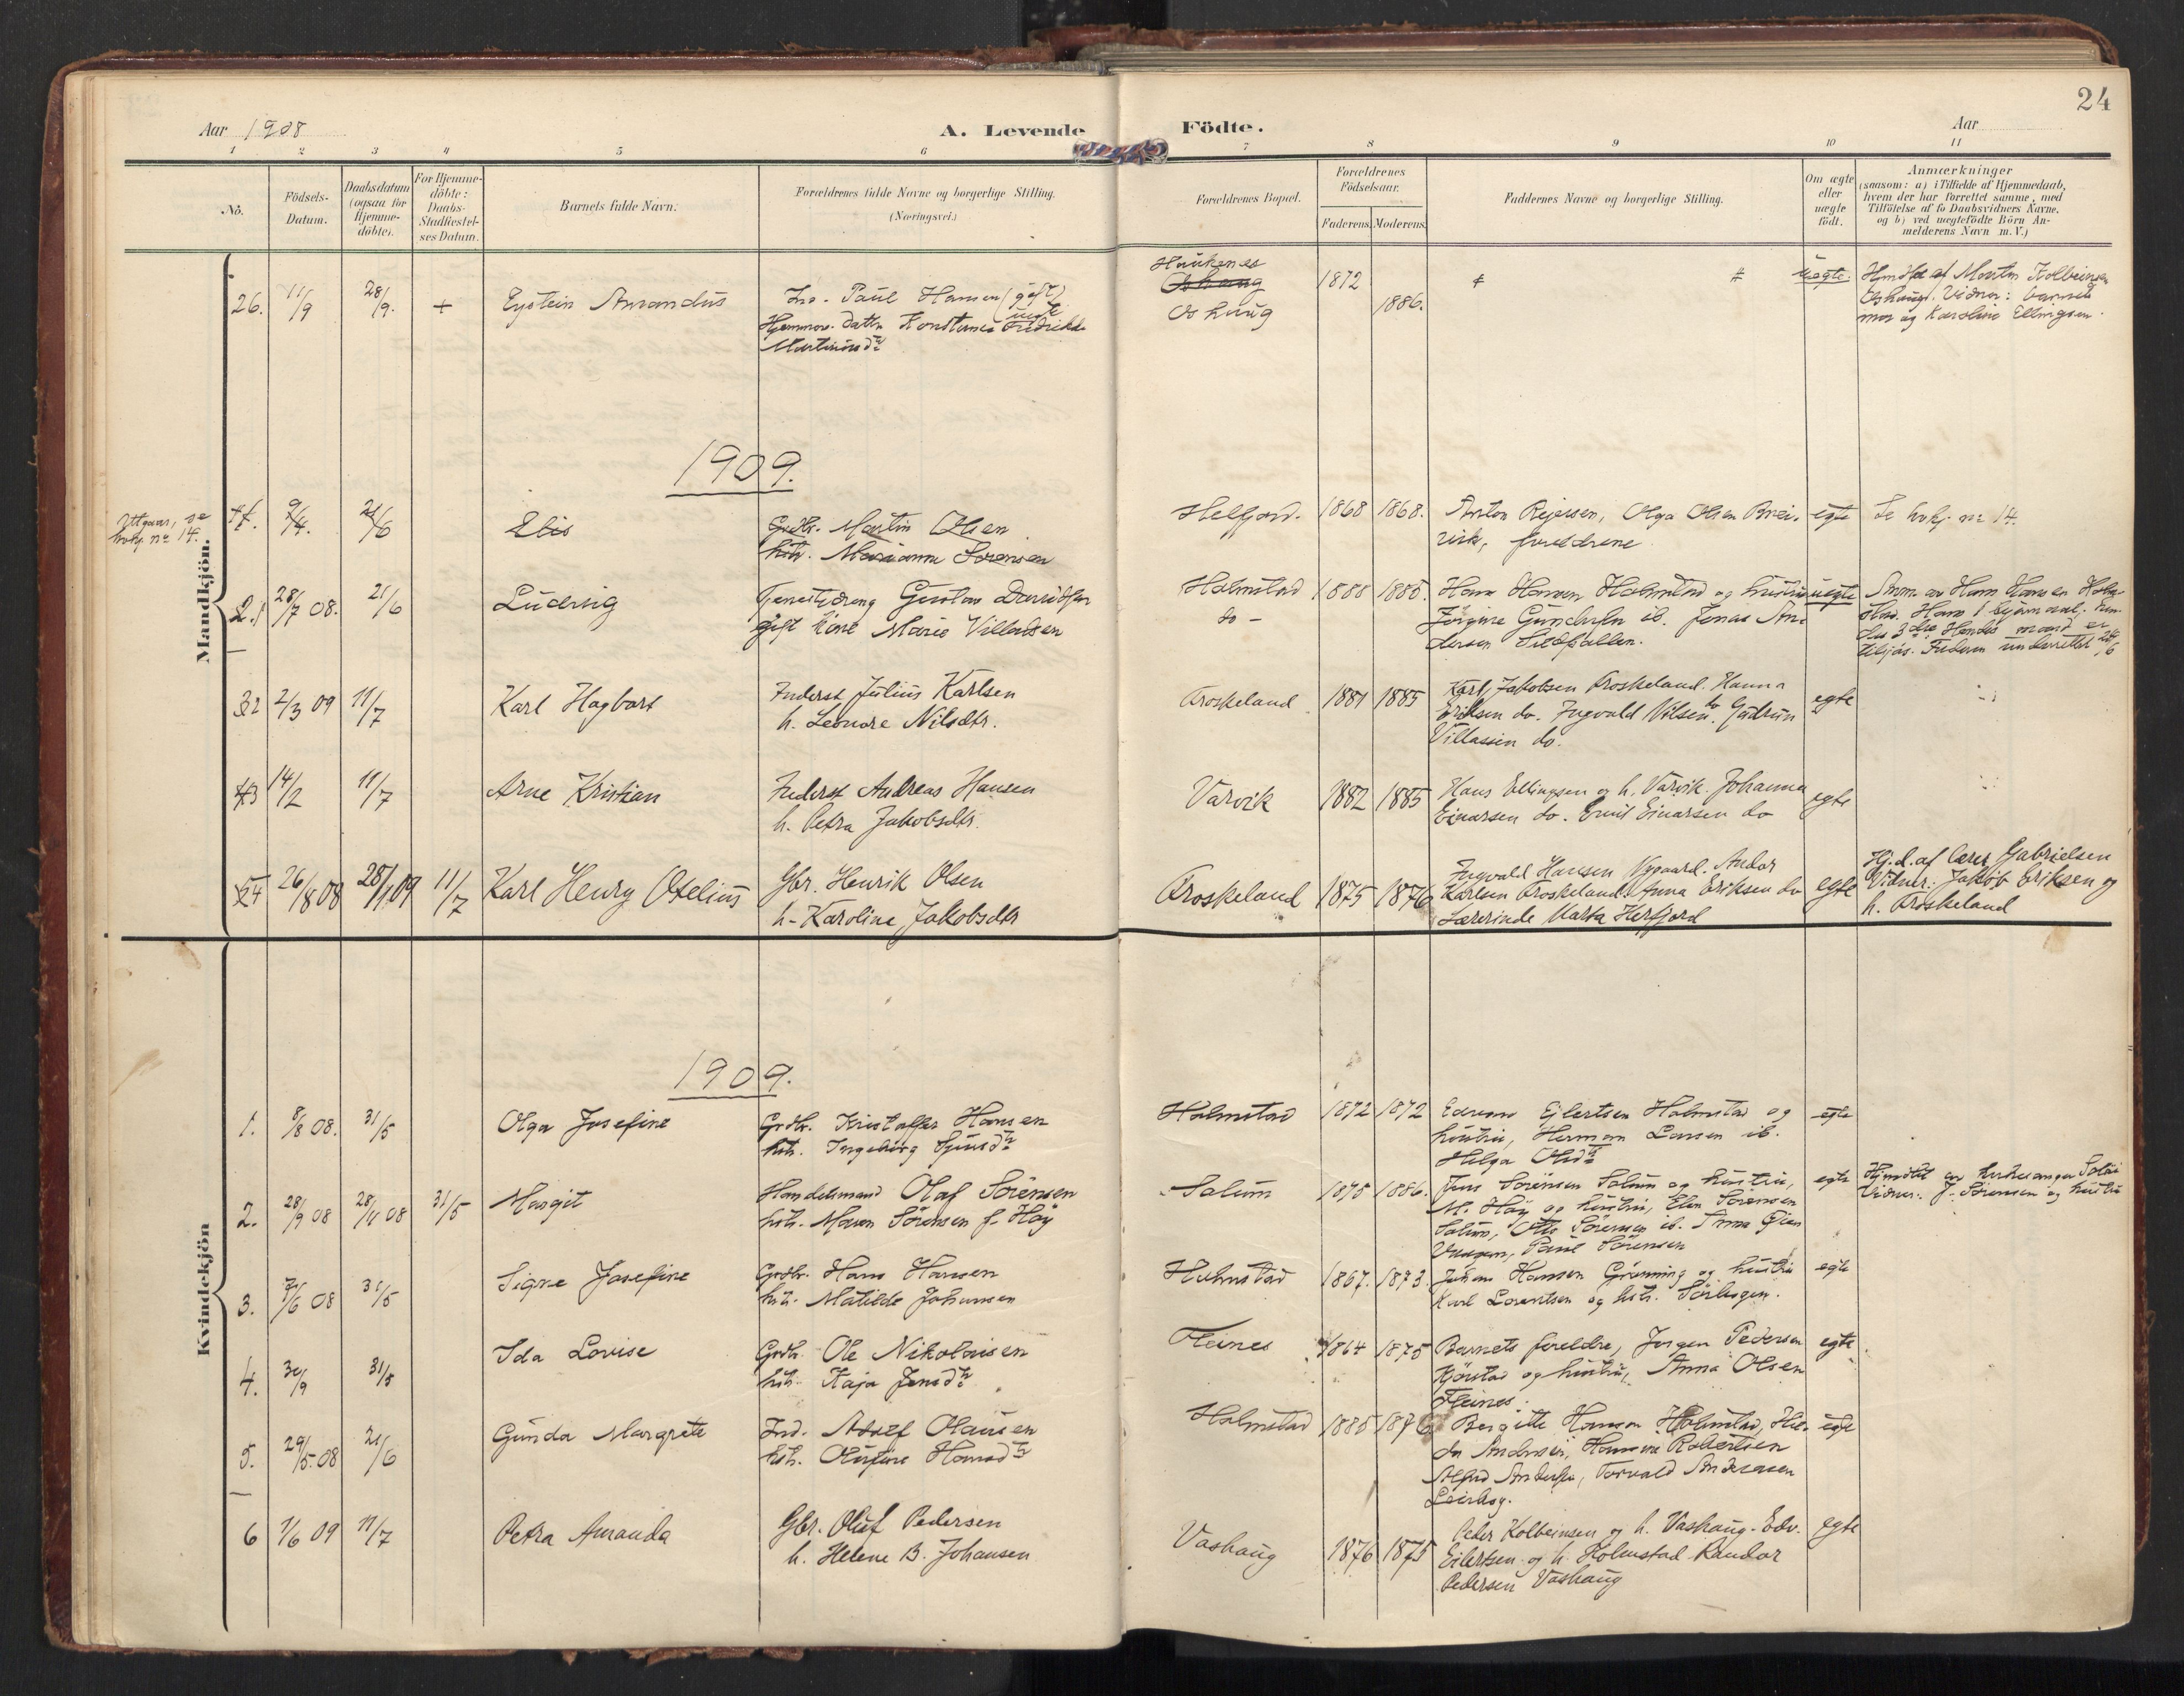 24
Aar 1908
A. Levende Födte.
Aar
1 2 3 4 5 6 7 8 9 10 11
No.
Födsels-
Datum.
Daabsdatum
(ogsaa for
Hjemme-
döbte).
For Hjemme-
döbte:
Daabs-
Stadfæstel-
ses Datum.
Barnets fulde Navn.
Forældrenes fulde Navne og borgerlige Stilling.
(Næringsvei.)
Forældrenes Bopæl.
Forældrenes
Födselsaar.
Faderens. Moderens.
Faddernes Navne og borgerlige Stilling.
Om ægte
eller
uægte
födt.
Anmærkninger
(saasom: a) i Tilfælde af Hjemmedaab,
hvem der har forrettet samme, med
Tilföielse af to Daabsvidners Navne,
og b) ved uægtefödte Börn An-
melderens Navn m. V.)
Mandkjön.
26. 11/9 28/9. + Eystein Amandus
Ind. Paul Hansen (gift)
Hjemmev. datter Konstanse Fredrikke
Martinusdtr
Haukenes
Oshaug
Oshaug
1872 1886.
uegte
Hjmdbt af Morten Kolbeinsen
Oshaug. Vidner: barnets
mor og Karoline Ellingsen.
1909.
Utgaar, se
kvkj. no 14.
9/4. 21/6 Elis
Grdbr. Martin Olsen
hstr. Marianne Sörensen
Helfjord. 1868 1868.
Anton Rejersen, Olga Olsen Brei-
vik, foreldrene
egte
Se kvkj. no 14.
2.1 28/7 08. 21/6 Ludvig
Tjenestedreng Gustav Davidsen
gift kone Marie Villadsen
Holmstad
do -
1888 1880.
Hans Hansen Holmstad og hustru
Jörgine Gundersen ib. Jonas An-
dersen Sildpollen.
uegte
Anm. av Hans Hansen Holm-
stad. Hans 1 leiermaal, hen-
des 3die. Hendes mand er
tilsjös. Faderen underrettet 24/6
32 2/3 09 11/7 Karl Hagbart
Inderst Julius Karlsen
h. Leonore Nilsdtr.
Froskeland 1881 1885
Karl Jakobsen Froskeland. Hanna
Eriksen do. Ingvald Nilsen do. Gudrun
Villassen do.
egte
43 14/2 11/7 Arne Kristian
Inderst Andreas Hansen
h. Petra Jakobsdtr.
Varvik 1882 1885
Hans Ellingsen og h. Varvik. Johanna
Einarsen do. Emil Einarsen do
egte
54 26/8 08 28/1 09 11/7 Karl Henry Otelius
Gbr. Henrik Olsen
h. Karoline Jakobsdtr
Froskeland 1875 1876
Ingvald Hansen Nygaard. Andor
Karlsen Froskeland. Anna Eriksen do
Lærerinde Marta Herfjord
egte
Hj.d. af lærer Gabrielsen
Vidner: Jakob Eriksen og
h. Froskeland
Kvindekjön
1909.
1. 8/8 08. 31/5 Olga Josefine
Grdbr. Kristoffer Hansen
hstr. Ingeborg Sjursdtr
Holmstad 1872 1872
Edvard Eilertsen Holmstad og
hustru, Herman Larsen ib.
Helga Olsdtr
egte
2. 28/9 08 28/11 08 31/5 Margit
Handelsmand Olaf Sörensen
hstr. Maren Sörensen f. Höy
Solum 1875 1886.
Jens Sörensen Solum og hustru,
M. Höy og hustru, Elen Sörensen
Solum, Otto Sörensen ib. Anna Öien
Paul Sörensen
egte
Hjmdbt av kirkesanger
Vidner: J. Sörensen og hustru
3. 7/6 08 31/5 Signe Josefine
Grdbr. Hans Hansen
hstr. Matilde Johansen
Holmstad 1867. 1873.
Johan Hansen Grönning og hustru
Karl Lorentsen og hstr. Sörbogen.
egte
4. 30/9 31/5 Ida Lovise
Grdbr. Ole Nikolaisen
hstr. Kaja Jensdtr
Fleines 1864 1875
Barnets foreldre, Jörgen Pedersen
Kjörstad og hustru, Anna Olsen
Fleines.
egte
5. 29/5.08 21/6 Gunda Margrete
Ind. Adolf Olausen
hstr. Olufine Hansdtr
Holmstad 1885 1876
Bergitte Hansen Holmstad, Hil-
da Andersen, Hansine Robertsen
Alfred Andersen, Torvald Andreasen
Leirbog.
egte
6 1/6 09 11/7 Petra Amanda
Gbr. Oluf Pedersen
h. Helene B. Johansen
Vashaug 1876 1875
Peder Kolbeinsen og h. Vashaug. Edv.
Eilertsen og h. Holmstad. Kandor
Pedersen Vashaug
egte